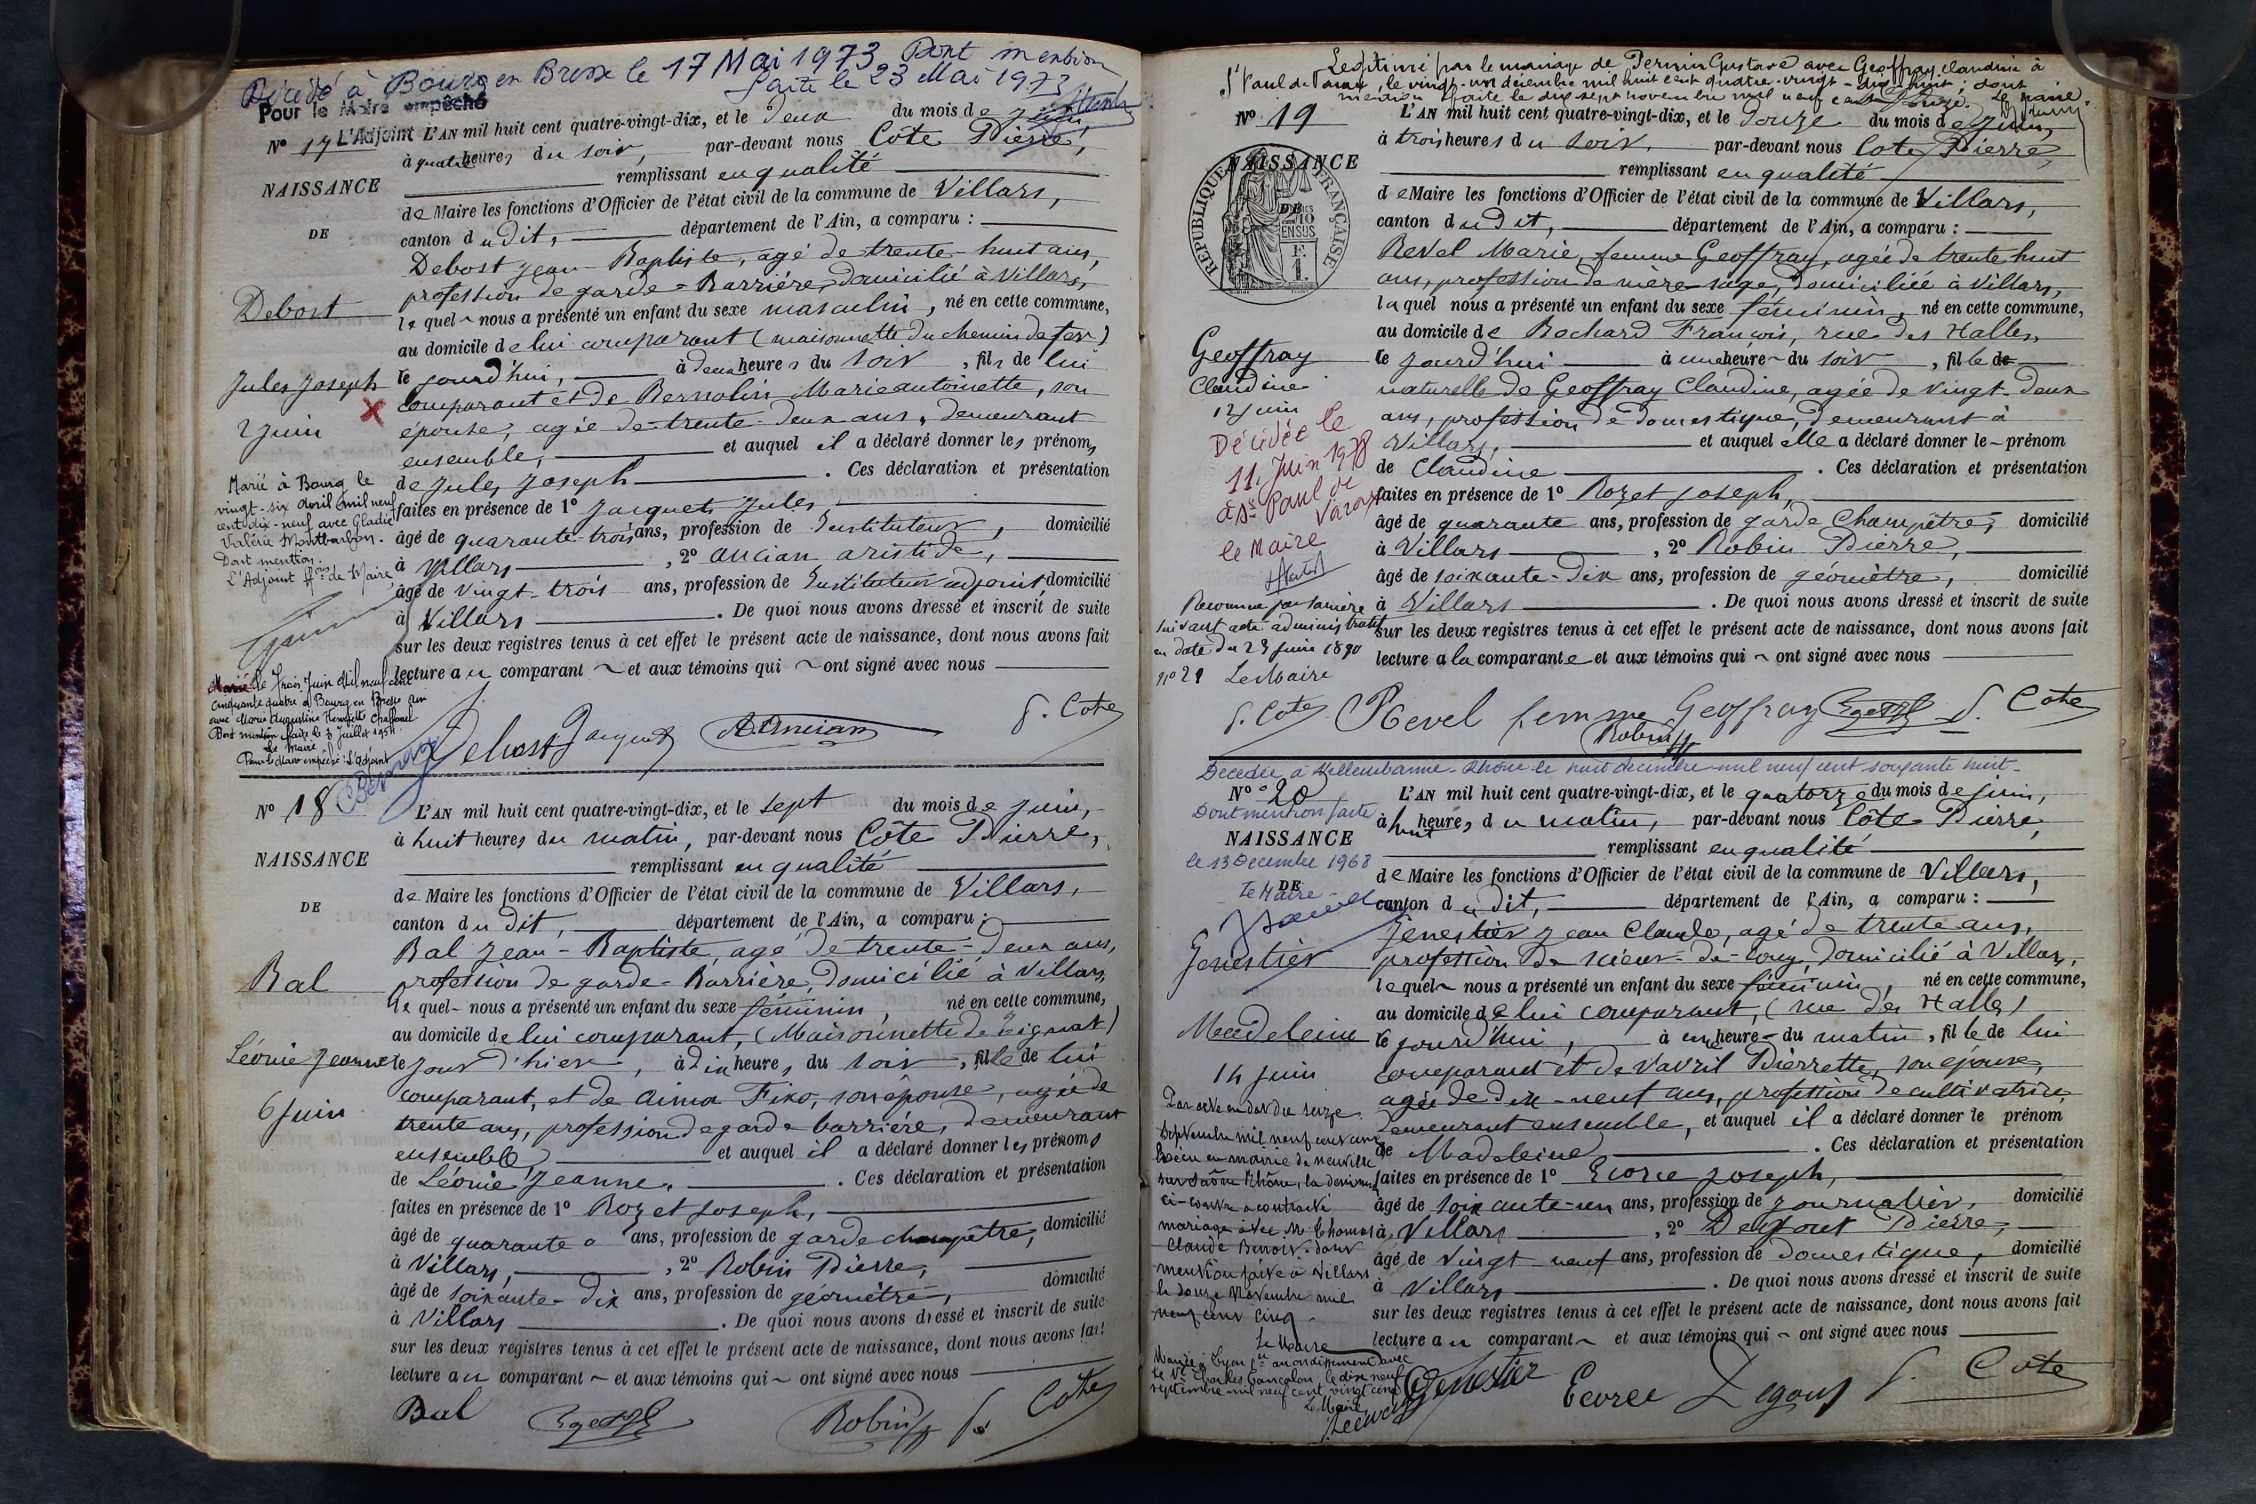 Décédé à Bourg en Bresse le 17 Mai 1973 Dont mention
faite le 23 Mai 1973
Pour le Maire empêché
L'Adjoint
N° 17
NAISSANCE
DE
Debost
Jules Joseph
2 juin
Marié à Bourg le
vingt-six Avril mil neuf
cent dix-neuf avec Gladie
Valérie Montbarbon.
Dont mention.
L'Adjoint ff.ons de Maire
Marié le trois Juin Mil neuf cent
cinquante quatre à Bourg en Bresse Ain
avec Marie Augustine Henriette
Dont mention faite le 3 Juillet 1954
Le Maire
Pour le Maire empêché : L'Adjoint
L'AN mil huit cent quatre-vingt-dix, et le deux du mois de juin,
à quatre heures du soir, par-devant nous Côte Pierre,
remplissant en qualité
de Maire les fonctions d'Officier de l'état civil de la commune de Villars,
canton dudit, département de l'Ain, a comparu :
Debost Jean-Baptiste, agé de trente-huit ans,
profession de garde-Barrière, domicilié à Villars,
lequel nous a présenté un enfant du sexe masculin, né en cette commune,
au domicile de lui comparant (maisonnette du chemin de fer)
le jourd'hui, à deux heures du soir, fils de lui
comparant et de Bernolin Marie antoinette, son
épouse, agée de trente-deux ans, demeurant
ensemble, et auquel il a déclaré donner les prénoms
de Jules Joseph. Ces déclaration et présentation
faites en présence de 1° Jacquet Jules,
âgé de quarante-trois ans, profession de Instituteur, domicilié
à Villars, 2° ancian aristide,
âgé de vingt-trois ans, profession de Instituteur adjoint, domicilié
à Villars. De quoi nous avons dressé et inscrit de suite
sur les deux registres tenus à cet effet le présent acte de naissance, dont nous avons fait
lecture au comparant et aux témoins qui ont signé avec nous
Debost Jacquet A. Ancian P. Cote
N° 18
NAISSANCE
DE
Bal
Léonie Jeanne
6 Juin
L'AN mil huit cent quatre-vingt-dix, et le sept du mois de juin,
à huit heures du matin, par-devant nous Côte Pierre,
remplissant en qualité
de Maire les fonctions d'Officier de l'état civil de la commune de Villars,
canton dudit, département de l'Ain, a comparu :
Bal Jean-Baptiste, agé de trente-deux ans,
profession de garde-Barrière, domicilié à Villars,
lequel nous a présenté un enfant du sexe féminin, né en cette commune,
au domicile de lui comparant, (Maisonnette de
le jour d'hier, à dix heures du soir, fille de lui
comparant, et de Aima Fixo, son épouse, agée de
trente ans, profession de garde barrière, demeurant
ensemble, et auquel il a déclaré donner les prénoms
de Léonie Jeanne. Ces déclaration et présentation
faites en présence de 1° Rozet Joseph,
âgé de quarante ans, profession de garde champêtre, domicilié
à Villars, 2° Robin Pierre,
âgé de soixante-dix ans, profession de géomètre, domicilié
à Villars. De quoi nous avons dressé et inscrit de suite
sur les deux registres tenus à cet effet le présent acte de naissance, dont nous avons fait
lecture au comparant et aux témoins qui ont signé avec nous
Bal Robin P. Cote
Legitimée par le mariage de Pernin Gustave avec Geoffray Claudine à
St Paul de Varax, le vingt-un décembre mil huit cent quatre-vingt-dix-huit ; dont
mention faite le dix sept novembre mil neuf cent Le Maire.
N° 19
NAISSANCE
DE
RÉPUBLIQUE FRANÇAISE
2/10 EN SUS
F. 1.
Geoffray
Claudine
12 juin
Décédée le
11 Juin 1978
à St Paul de
Varax
le Maire
Reconnue par sa mère
suivant acte administratif
en date du 23 juin 1890
n° 21 Le Maire
P. Cote
L'AN mil huit cent quatre-vingt-dix, et le douze du mois de juin,
à trois heures du soir, par-devant nous Cote Pierre,
remplissant en qualité
de Maire les fonctions d'Officier de l'état civil de la commune de Villars,
canton dudit, département de l'Ain, a comparu :
Revel Marie, femme Geoffray, agée de trente huit
ans, profession de mère-sage, domiciliée à Villars,
laquel nous a présenté un enfant du sexe féminin, né en cette commune,
au domicile de Bochard François, rue des Halles,
le jourd'hui à une heure du soir, fille de
naturelle de Geoffray Claudine, agée de vingt-deux
ans, profession de domestique, demeurant à
Villars, et auquel elle a déclaré donner le prénom
de Claudine. Ces déclaration et présentation
faites en présence de 1° Rozet Joseph,
âgé de quarante ans, profession de garde champêtre, domicilié
à Villars, 2° Robin Pierre,
âgé de soixante-dix ans, profession de géomètre, domicilié
à Villars. De quoi nous avons dressé et inscrit de suite
sur les deux registres tenus à cet effet le présent acte de naissance, dont nous avons fait
lecture a la comparante et aux témoins qui ont signé avec nous
Revel femme Geoffray P. Cote
Robin
Décédée à Villeurbanne-Rhône le huit décembre mil neuf cent soixante huit
N° 20
Dont mention faite
NAISSANCE
le 13 Decembre 1968
DE
Le Maire
Genestier
Madeleine
14 juin
Par acte en date du seize
septembre mil neuf cent cinq
en mairie de neuville
sur Saône Rhône, la dénommée
ci-contre a contracté
mariage avec Mr Thomas
Claude Benoit. dont
mention faite à Villars
le douze Novembre mil
neuf cent cinq.
Le Maire
Mariée à Lyon 1er arrondissement avec
Charles Gancalon le dix neuf
septembre mil neuf cent vingt cinq
Le Maire
L'AN mil huit cent quatre-vingt-dix, et le quatorze du mois de juin,
à huit heures du matin, par-devant nous Côte Pierre,
remplissant en qualité
de Maire les fonctions d'Officier de l'état civil de la commune de Villars,
canton dudit, département de l'Ain, a comparu :
Jenestier Jean Claude, agé de trente ans,
profession de scieur-de-long, domicilié à Villars,
lequel nous a présenté un enfant du sexe féminin, né en cette commune,
au domicile de lui comparant, (rue des Halles)
le jourd'hui, à une heure du matin, fille de lui
comparant et de Vavril Pierrette, son épouse,
agée de dix-neuf ans, profession de cultivatrice,
demeurant ensemble, et auquel il a déclaré donner le prénom
de Madeleine. Ces déclaration et présentation
faites en présence de 1° Ecorce Joseph,
âgé de soixante-un ans, profession de journalier, domicilié
à Villars, 2° Degout Pierre,
âgé de vingt neuf ans, profession de domestique, domicilié
à Villars. De quoi nous avons dressé et inscrit de suite
sur les deux registres tenus à cet effet le présent acte de naissance, dont nous avons fait
lecture au comparant et aux témoins qui ont signé avec nous
Genestier Ecorce Degout P. Cote